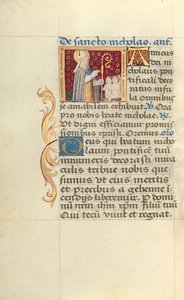 De sancto nicholao. an̄t.
Amicus
dei ni
cholaus pon
tificali deco
ratus infu
la omnibus
se amabilem exhibuit. V. Ora
pro nobis beate nicholae. R.
Ut digni efficiamur promis
sionibus xp̄isti. Oremus. or̄o
Deus qui beatum nicho
laum pontificē tuū
innumeris decorasti mira
culis tribue nobis que
sumus ut eius meritis
et precibus a gehenne i
cendijs liberemur. P do
num
Qui tecū vivit et regnat.